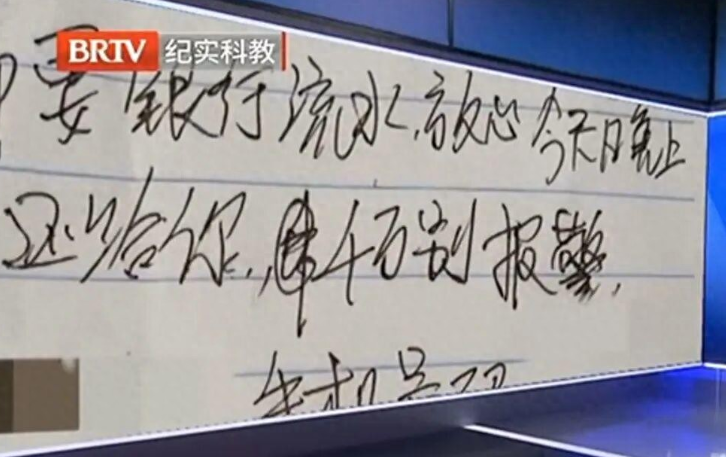 BRTV 纪实科教
要银行流水,放心今天晚上
还给你,千万别报警,
手机号